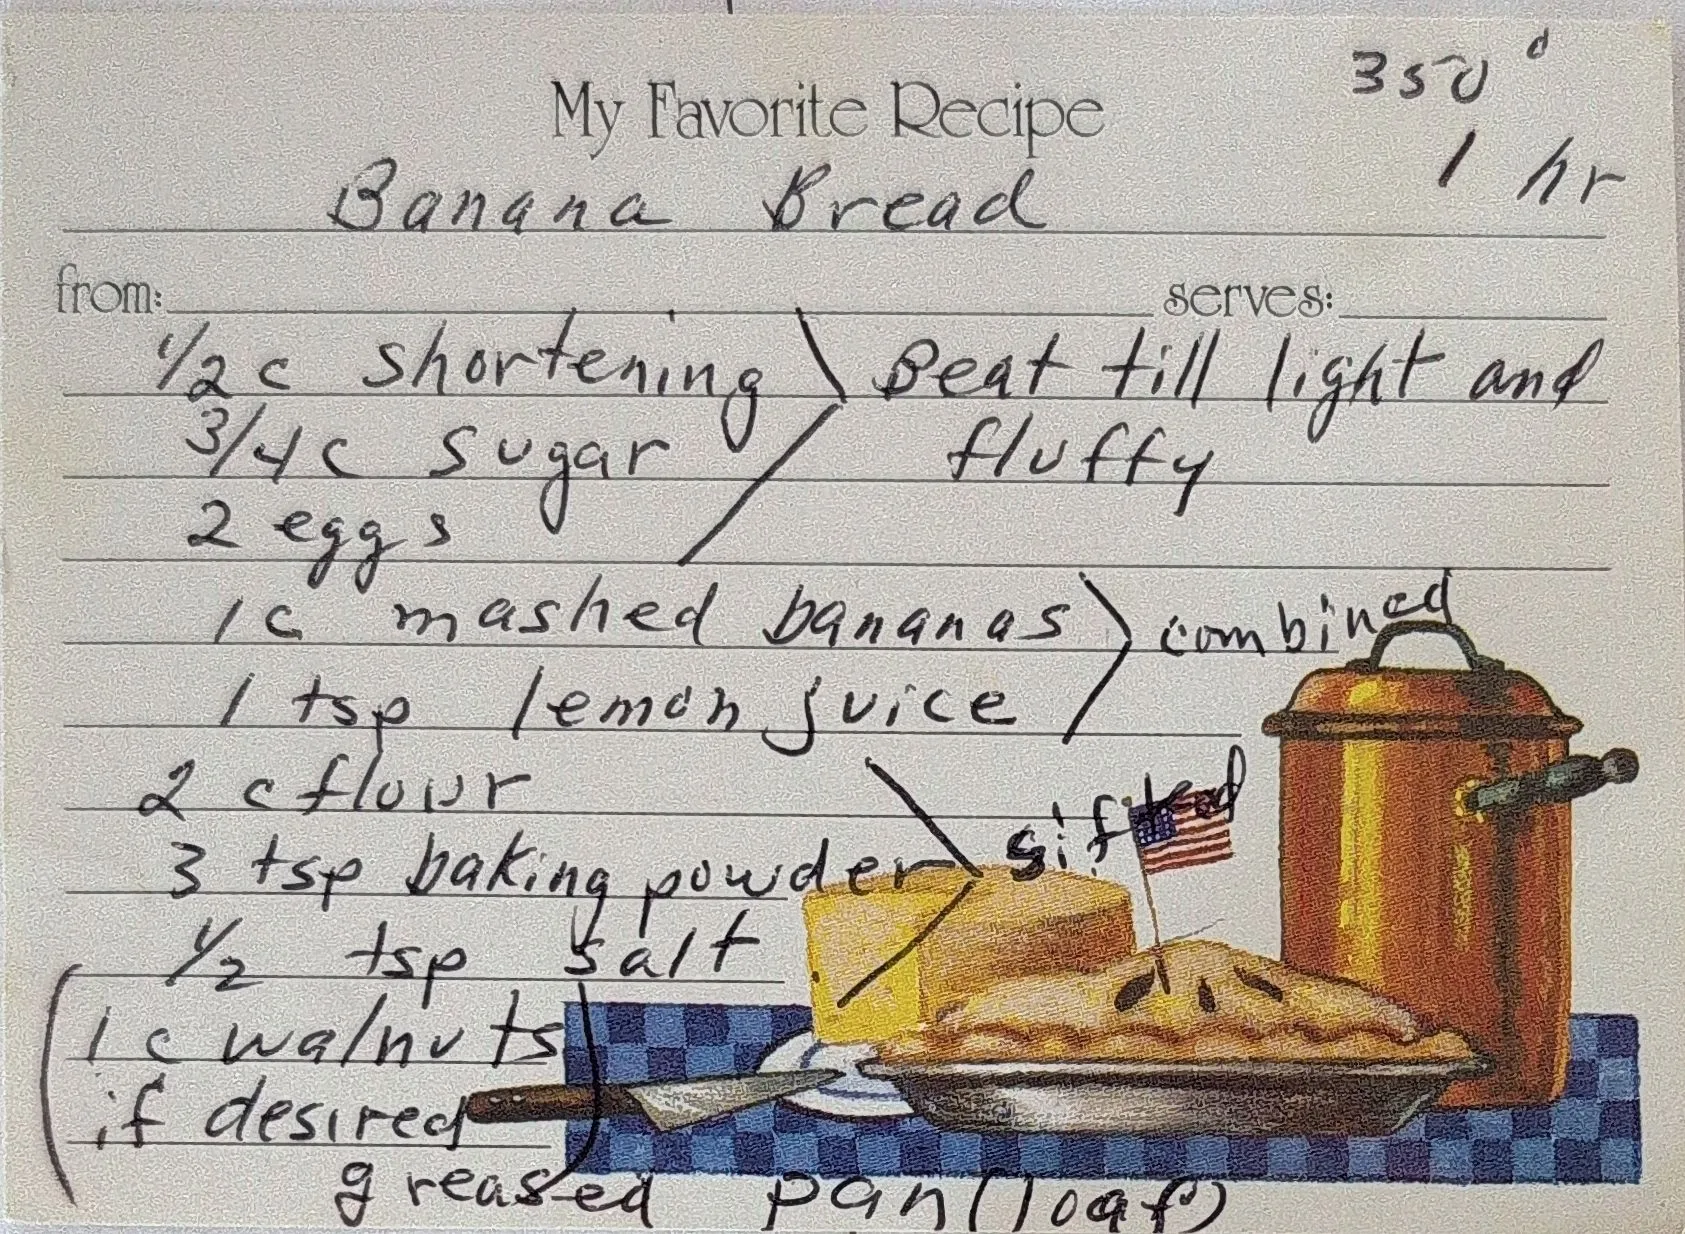 350°
My Favorite Recipe
1 hr
Banana Bread
from: serves:
1/2 c shortening Beat till light and
3/4 c sugar fluffy
2 eggs
1 c mashed bananas combined
1 tsp lemon juice
2 c flour
3 tsp baking powder sifted
1/2 tsp salt
(1 c walnuts
if desired)
greased pan (loaf)